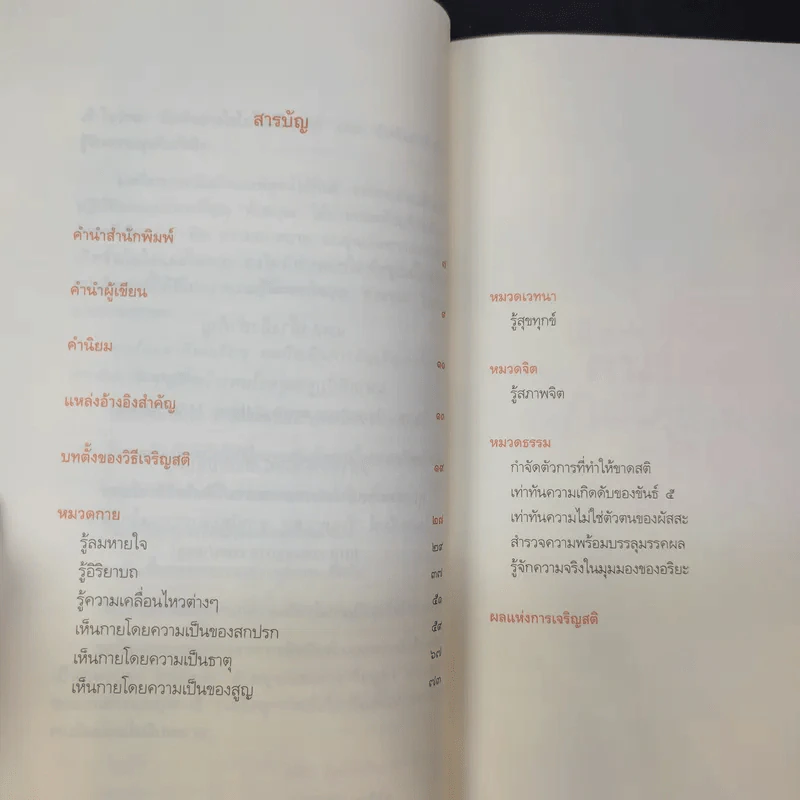 สารบัญ
คำนำสำนักพิมพ์
คำนำผู้เขียน ๙
คำนิยม ๑๑
แหล่งอ้างอิงสำคัญ
บทตั้งของวิธีเจริญสติ ๑๙
หมวดกาย ๒๗
รู้ลมหายใจ ๒๙
รู้อิริยาบถ ๓๗
รู้ความเคลื่อนไหวต่างๆ ๕๑
เห็นกายโดยความเป็นของสกปรก ๕๙
เห็นกายโดยความเป็นธาตุ ๖๗
เห็นกายโดยความเป็นของสูญ ๗๓
หมวดเวทนา
รู้สุขทุกข์
หมวดจิต
รู้สภาพจิต
หมวดธรรม
กำจัดตัวการที่ทำให้ขาดสติ
เท่าทันความเกิดดับของขันธ์ ๕
เท่าทันความไม่ใช่ตัวตนของผัสสะ
สำรวจความพร้อมบรรลุมรรคผล
รู้จักความจริงในมุมมองของอริยะ
ผลแห่งการเจริญสติ